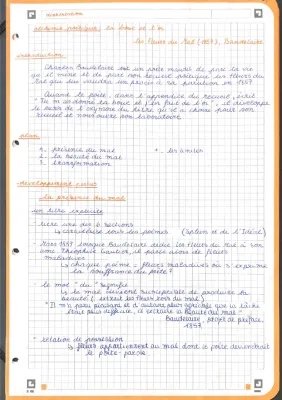 alchimie poétique : la boue et l'or
Les Fleurs du Mal (1857), Baudelaire
introduction
Charles Baudelaire est un poète maudit de par la vie
qu'il mène et de par son recueil poétique Les Fleurs du
Mal qui lui vaudra un procès à sa parution en 1857
Quand le poète, dans l'appendice du recueil, écrit
"Tu m'as donné ta boue et j'en fait de l'or", il développe
le recueil son laboratoire
plan
1. présence du mal
2. la beauté du mal
3. transformation
+ les limites
développement
la présence du mal
un titre
titre une des 6 sections
tous les poèmes (Spleen et de l'Idéal)
1857 lorsque Baudelaire dédie Les Fleurs du Mal à son
ami Théophile Gautier, il parle alors de fleurs
maladives
↳ chaque poème = fleurs maladives où s'exprime
la souffrance du poète ?
le mot "du" signifie
↳ le mal de produire la
beauté (extrait les fleurs hors du mal)
"Il m'a paru plaisant, et d'autant plus agréable que la tâche
était plus difficile, d'extraire la beauté du mal"
Baudelaire, projet de préface,
1857
relation de possession
↳ fleurs appartiennent au mal dont le poète deviendrait
le porte-parole